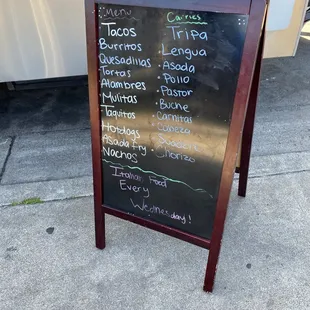 Menu
Tacos
Burritos
Quesadillas
Tortas
Alambres
Mulitas
Taquitos
Hotdogs
Asada fry
Nachos
Carries
Tripa
Lengua
Asada
Pollo
Pastor
Buche
Carnitas
Cabeza
Chorizo
Italian Food
Every
Wednesday!